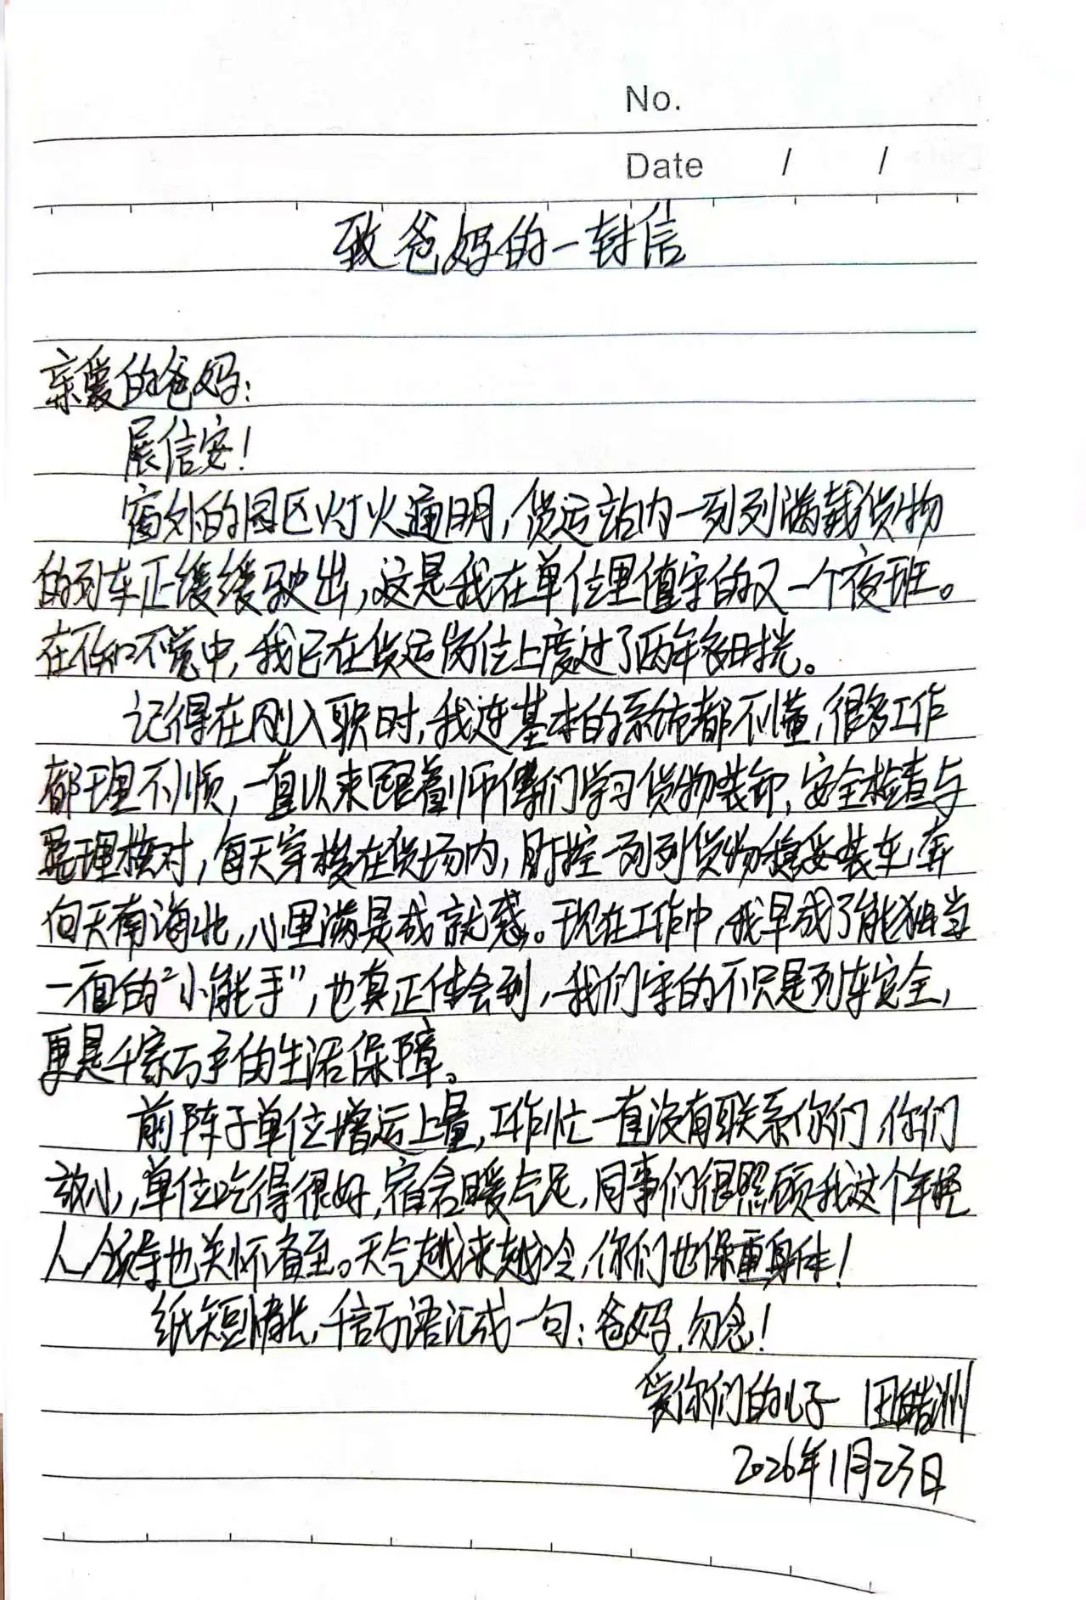 No.
Date / /
致爸妈的一封信
亲爱的爸妈:
展信安!
窗外的园区灯火通明,货运站内一列列满载货物
的列车正缓缓驶出,这是我在单位里值守的又一个夜班。
在不知不觉中,我已在货运岗位上度过了两年多时光。
记得在刚入职时,我连基本的系统都不懂,很多工作
都理不顺,一直以来跟着师傅们学习货物装卸,安全检查与
整理核对,每天穿梭在货场内,盯控一列列货物稳妥装车,奔
向天南海北,心里满是成就感。现在工作中,我早成了能独当
一面的“小能手”,也真正体会到,我们守的不只是列车安全,
更是千家万户的生活保障。
前阵子单位增运上量,工作忙一直没有联系你们,你们
放心,单位吃得很好,宿舍暖气足,同事们很照顾我这个年轻
人,领导也关怀备至。天气越来越冷,你们也保重身体!
纸短情长,千言万语汇成一句:爸妈,勿念!
爱你们的儿子 田皓洲
2026年1月23日